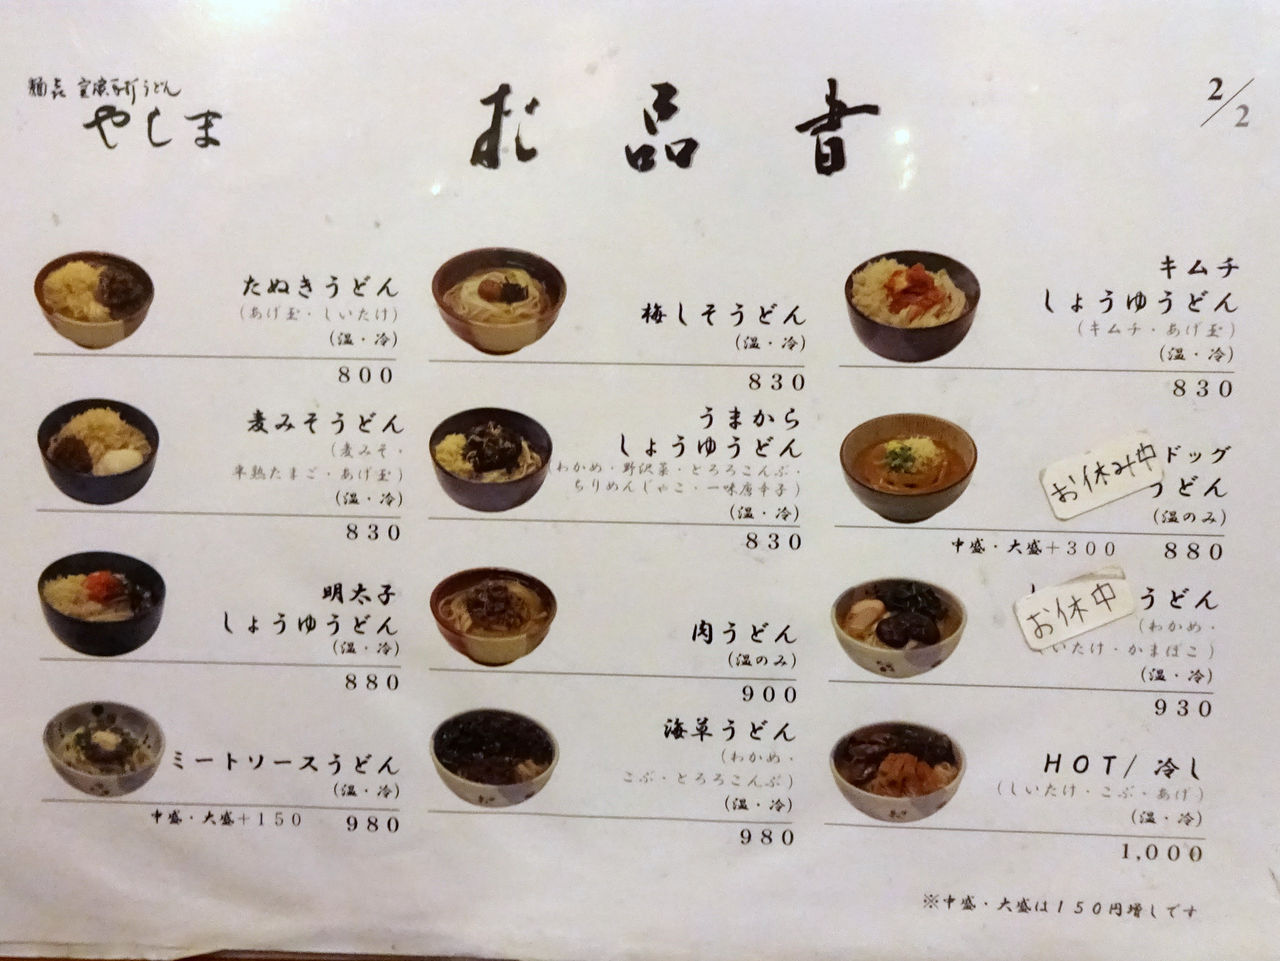 麺喜
うどん
やしま
お品書
2/2
たぬきうどん
(あげ玉・しいたけ)
(温・冷)
800
麦みそうどん
(麦みそ・
半熟たまご・あげ玉)
(温・冷)
830
明太子
しょうゆうどん
(温・冷)
880
ミートソースうどん
(温・冷)
中盛・大盛+150 980
梅しそうどん
(温・冷)
830
うまから
しょうゆうどん
(わかめ・野沢菜・とろろこんぶ・
ちりめんじゃこ・一味唐辛子)
(温・冷)
830
肉うどん
(温のみ)
900
海草うどん
(わかめ・
こぶ・とろろこんぶ)
(温・冷)
980
キムチ
しょうゆうどん
(キムチ・あげ玉)
(温・冷)
830
お休み中
ドッグ
うどん
(温のみ)
中盛・大盛+300 880
お休中
うどん
(わかめ・
いたけ・かまぼこ)
(温・冷)
930
HOT/冷し
(しいたけ・こぶ・あげ)
(温・冷)
1,000
※中盛・大盛は150円増しです